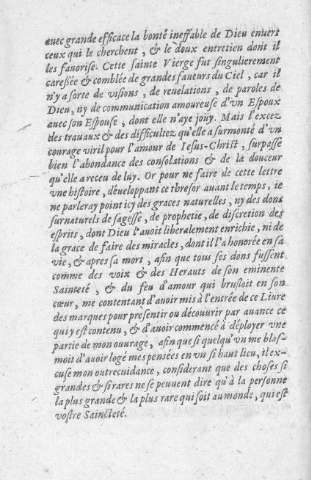 auec grande efficace la bonté ineffable de Dieu enuers
ceux qui le cherchent, & le doux entretien dont il
les fauorise. Cette sainte Vierge fut singulierement
caressée & comblée de grandes faueurs du Ciel, car il
n'y a sorte de visions, de reuelations, de paroles de
Dieu, ny de communication amoureuse d'vn Espoux
auec son Espouse, dont elle n'aye jouy. Mais l'excez
des trauaux & des difficultez qu'elle a surmonté d'vn
courage viril pour l'amour de Iesus-Christ, surpasse
bien l'abondance des consolations & de la douceur
qu'elle a receu de luy. Or pour ne faire de cette lettre
vne histoire, déueloppant ce thresor auant le temps, ie
ne parleray point icy des graces naturelles, ny des dons
surnaturels de sagesse, de prophetie, de discretion des
esprits, dont Dieu l'auoit liberalement enrichie, ni de
la grace de faire des miracles, dont il l'a honorée en sa
vie, & apres sa mort, afin que tous ses dons fussent
comme des voix & des Herauts de son eminente
Sainteté, & du feu d'amour qui brusloit en son
cœur, me contentant d'auoir mis à l'entrée de ce Liure
des marques pour presentir ou découurir par auance ce
qui y est contenu, & d'auoir commencé à déployer vne
partie de mon ouurage, afin que si quelqu'vn me blas-
moit d'auoir logé mes pensées en vn si haut lieu, il ex-
cuse mon outrecuidance, considerant que des choses si
grandes & si rares ne se peuuent dire qu'à la personne
la plus grande & la plus rare qui soit au monde, qui est
vostre Saincteté.